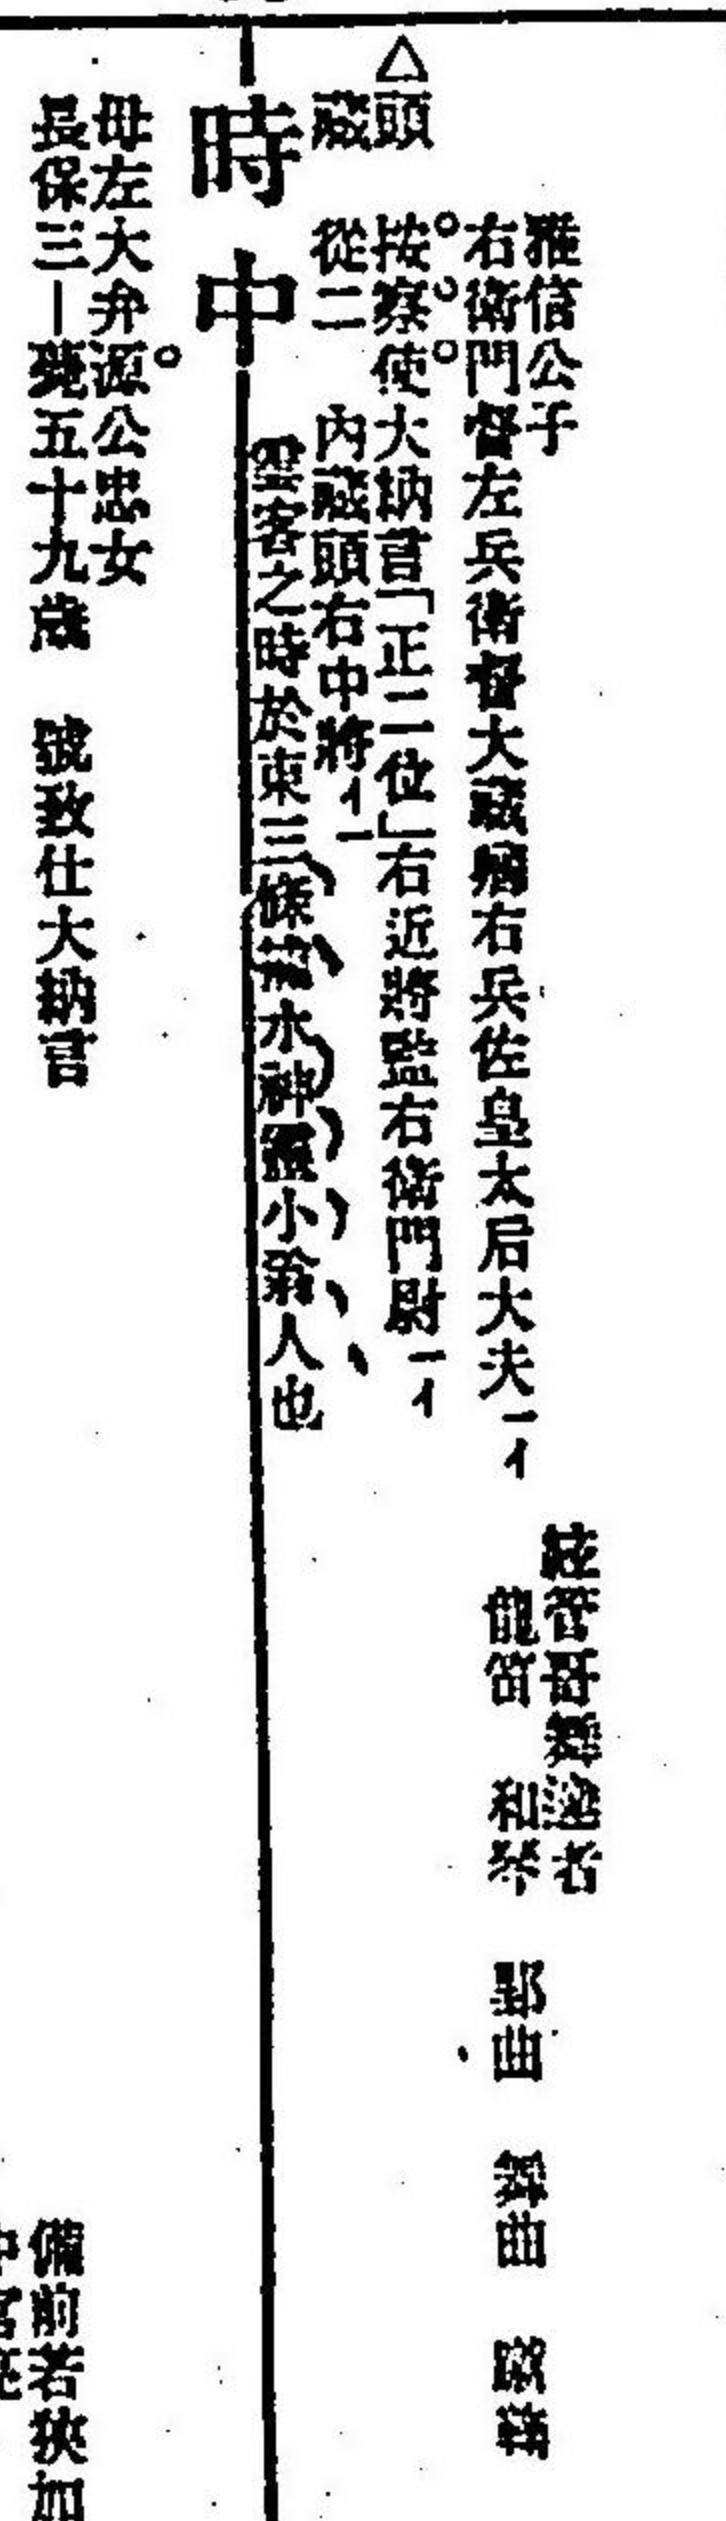 雅信公子
右衛門督左兵衛督大蔵卿右兵佐皇太后大夫一イ
絃管哥舞達者
龍笛 和琴 郢曲 舞曲 蹴鞠
△頭
蔵
按察使大納言「正二位」右近將監右衛門尉一イ
從二 內蔵頭右中將イ一
雲客之時於東三條 水神靈小翁人也
時中
母左大弁源公忠女
長保三―薨五十九歳 號致仕大納言
備前若狹加
中宮亮